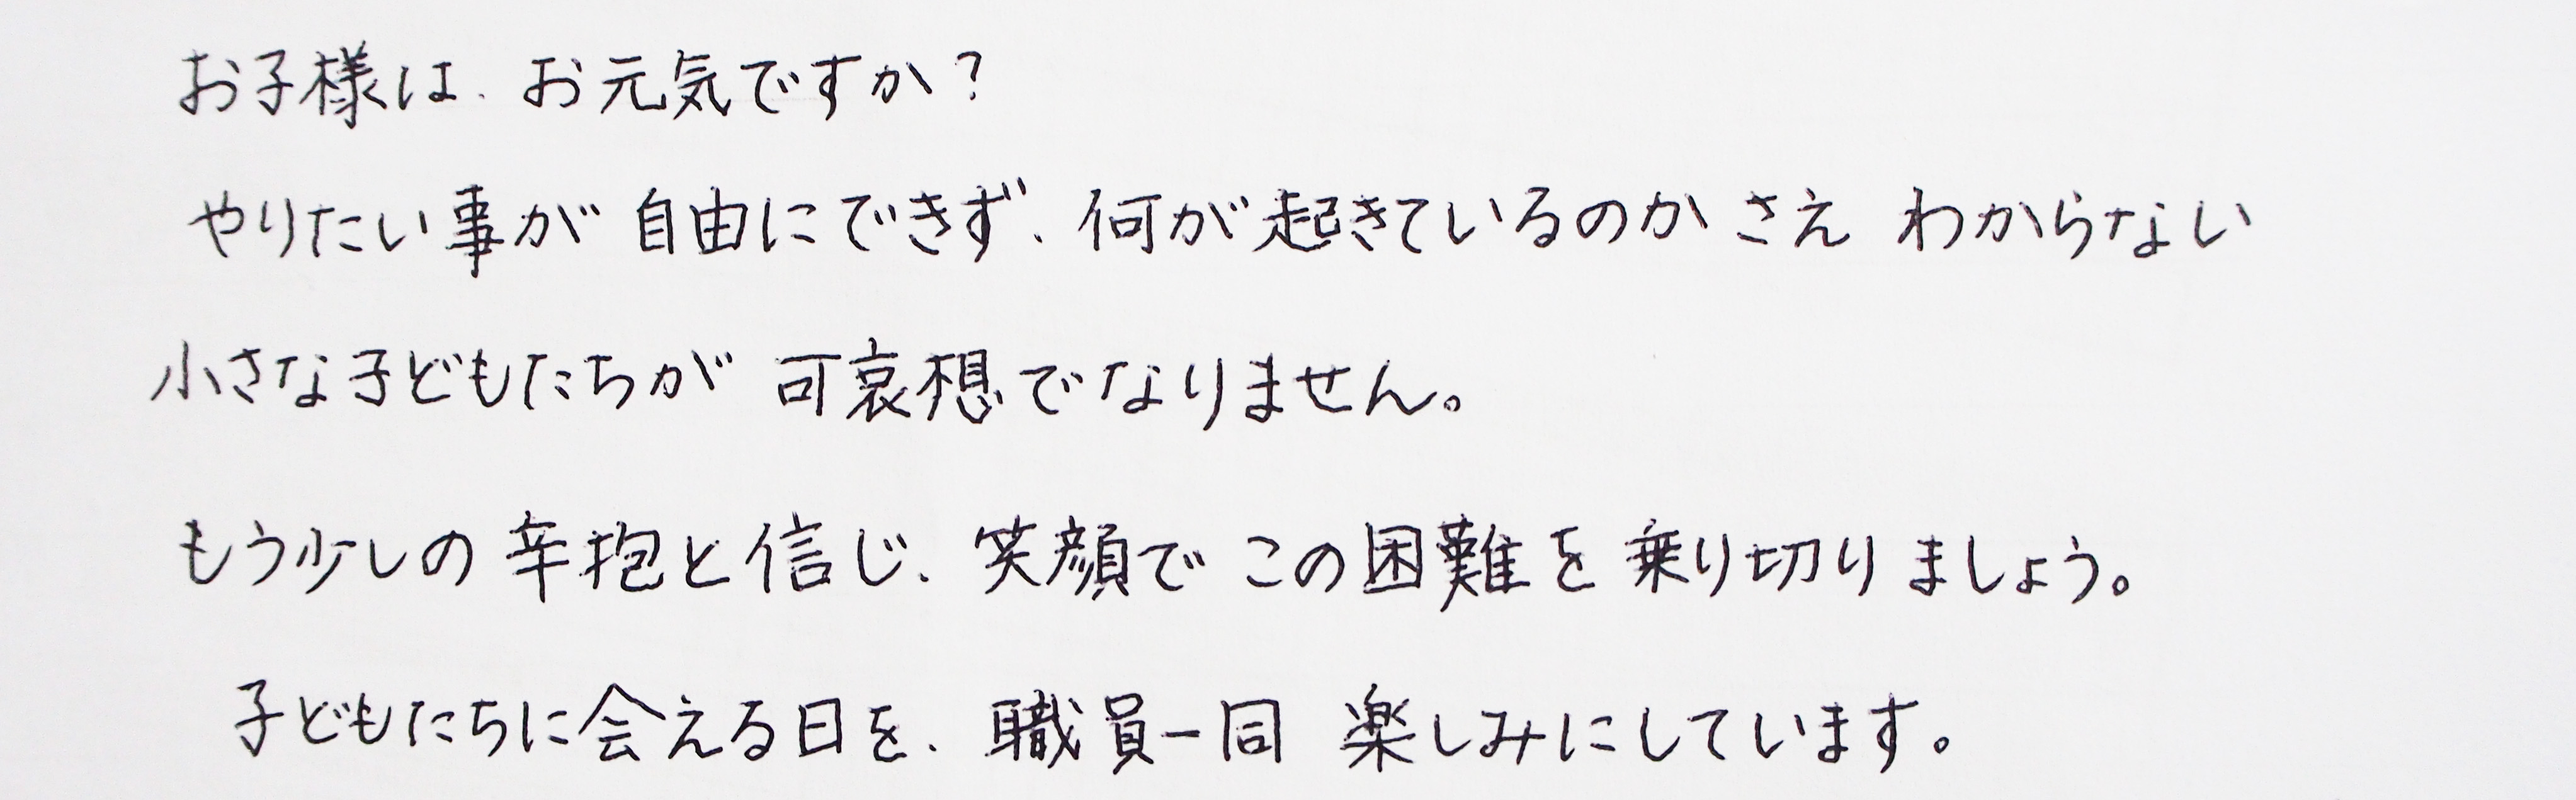 お子様は、お元気ですか？
やりたい事が 自由にできず、何が起きているのか さえ わからない
小さな子どもたちが 可哀想でなりません。
もう少しの 辛抱と信じ、笑顔で この困難を 乗り切りましょう。
子どもたちに会える日を、職員一同 楽しみにしています。